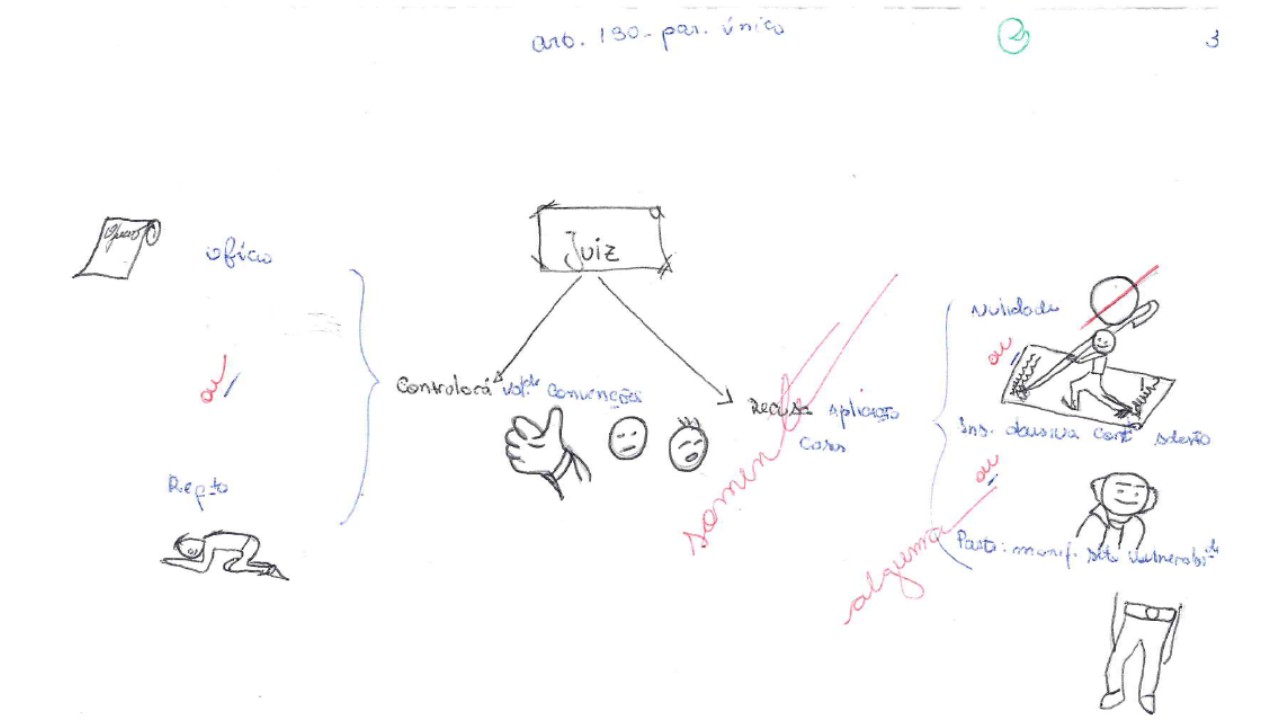 aro. 130 - par. único
2
3
ofício
ofício
ou
Reqto
Juiz
Controlará val.de convenções
Recusa aplicação
casos
somente
nulidade
ou
Ins. abusiva cont adesão
ou
alguma
Parte: manif. sit. vulnerabi